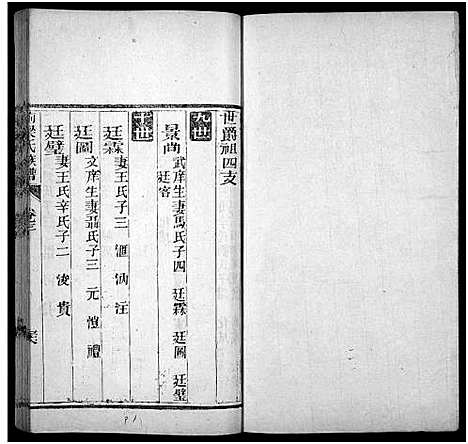 世爵祖四支
九世
景尚 武庠生妻馬氏子四 廷霖 廷圖 廷璧
廷窑
十世
廷霖 妻王氏子三 汕 注
廷圖 文庠生妻聶氏子三 元 愷 禮
廷璧 妻王氏辛氏子二 淩 貴
梁氏族譜 卷三